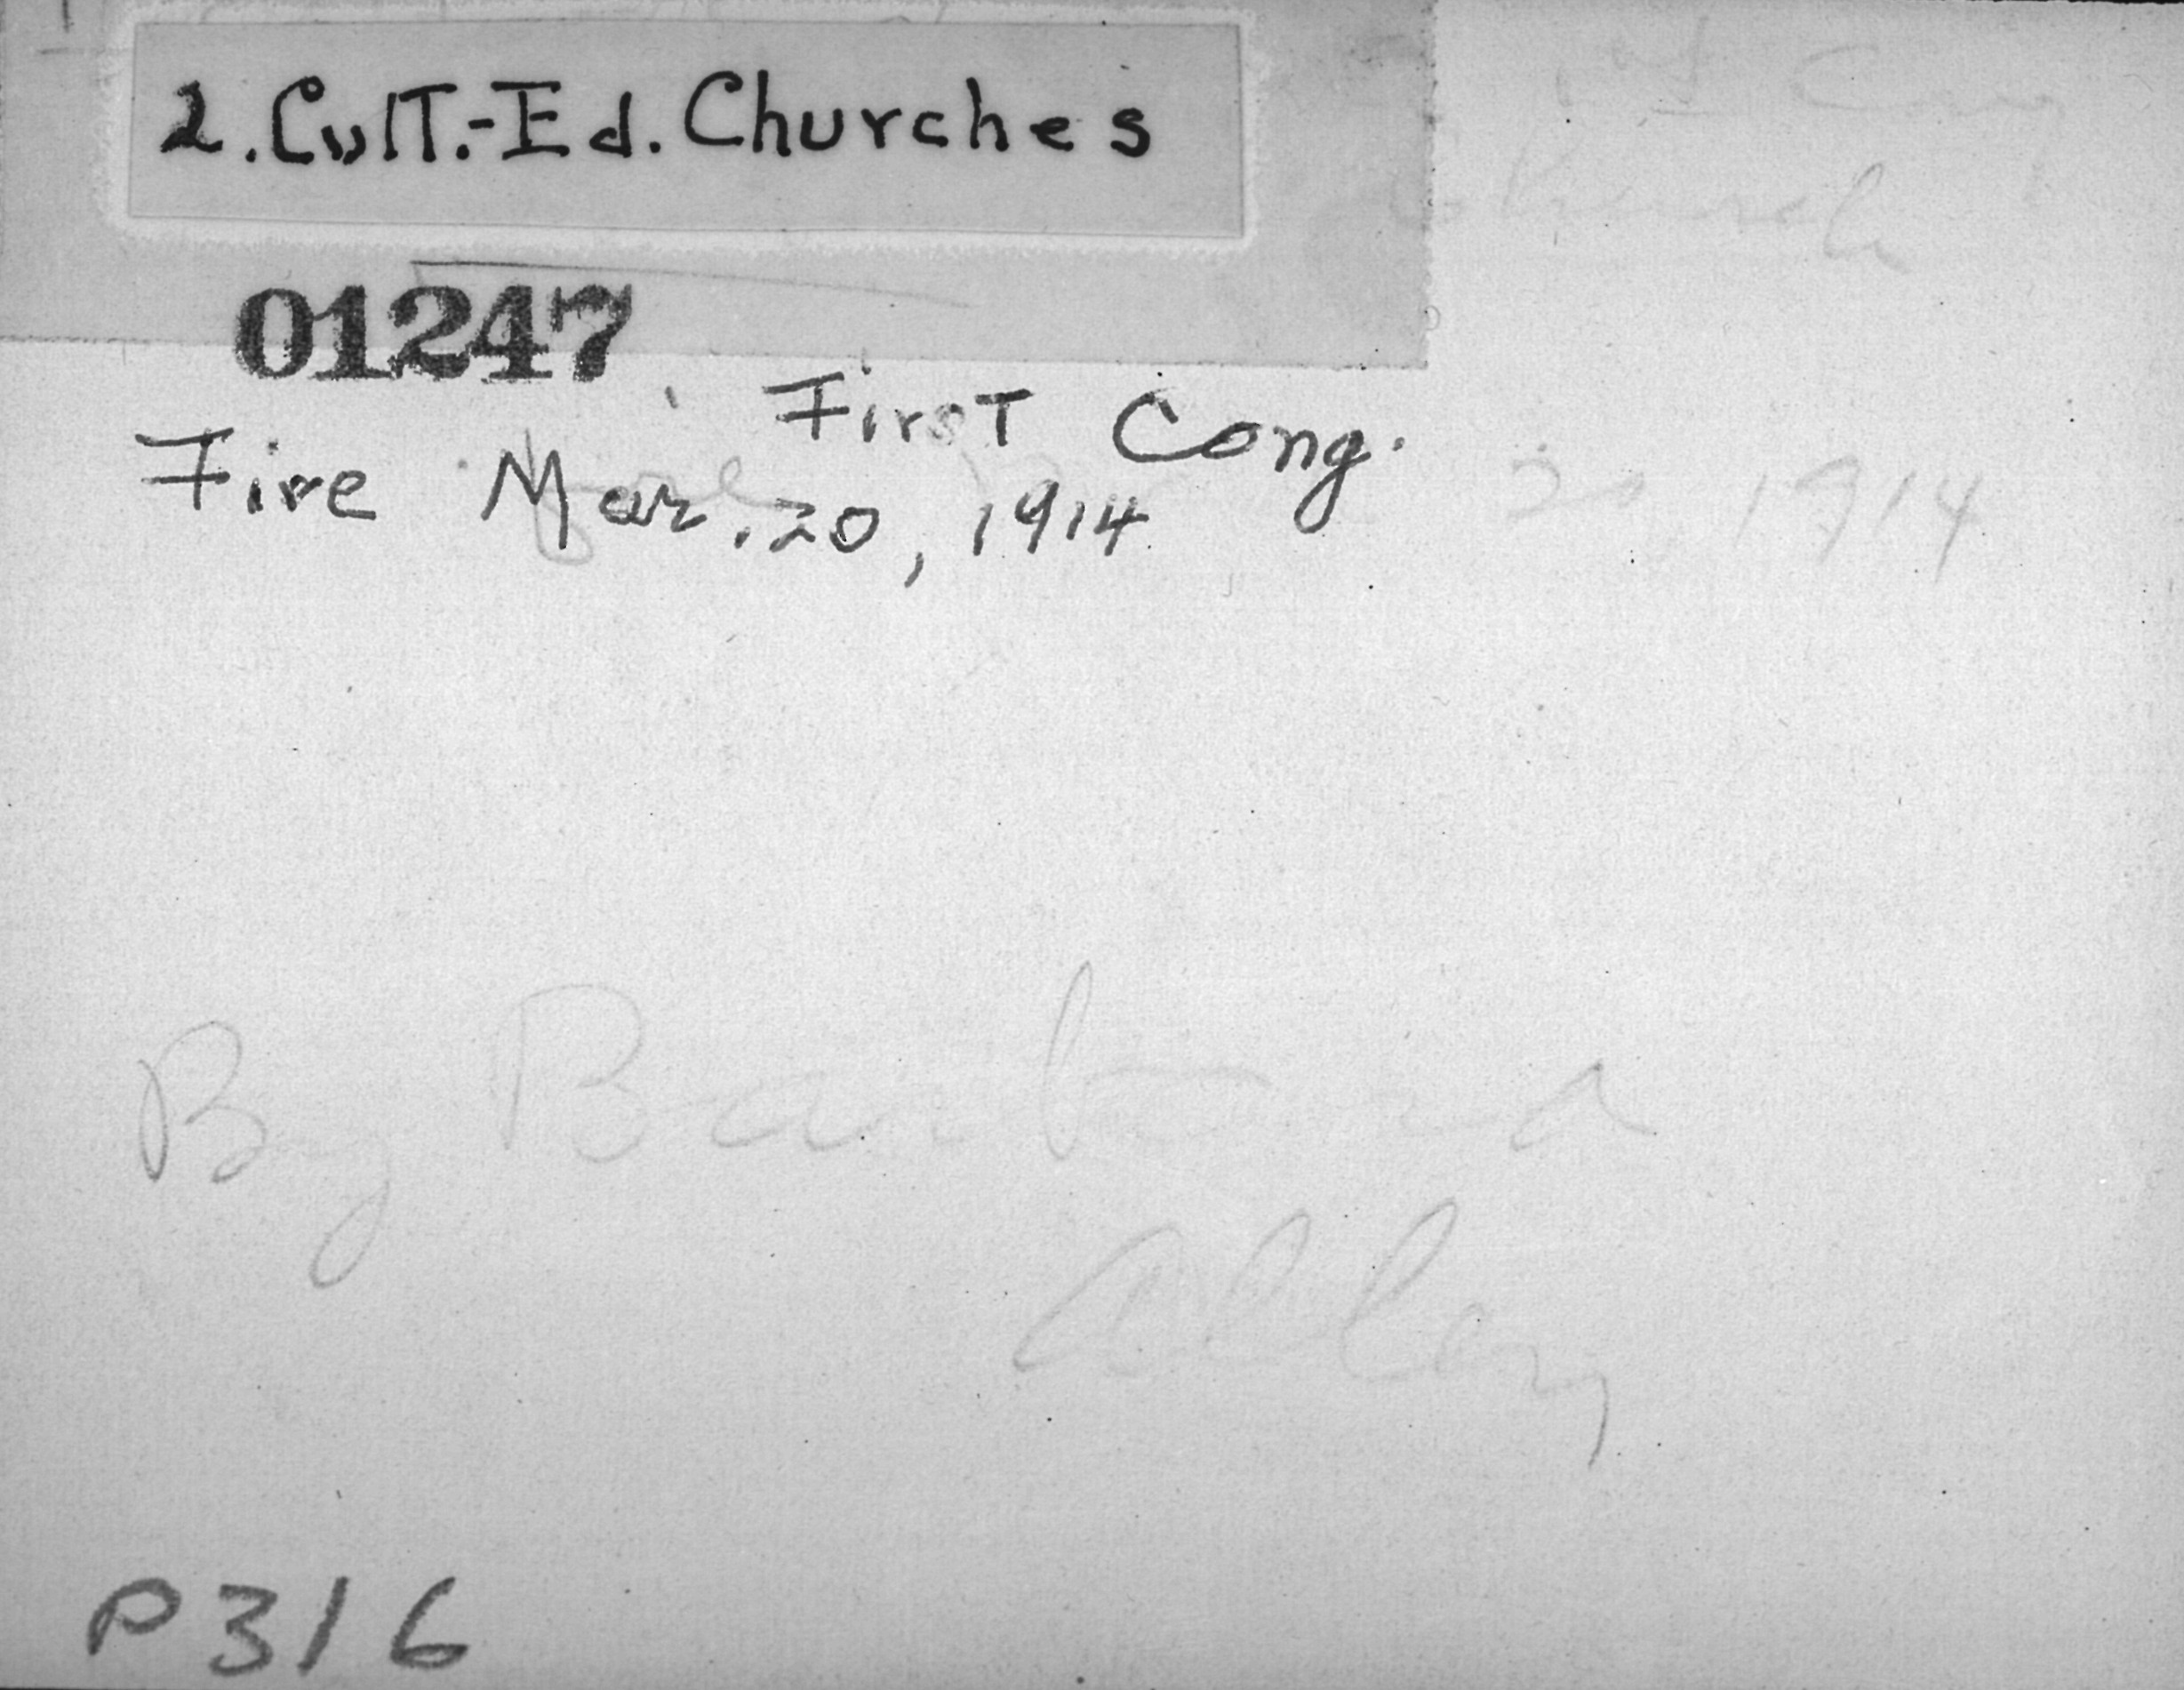 2. Cult.-Ed. Churches
1st Cong
Church
01247
First Cong.
Fire Mar. 20, 1914
20, 1914
By
P316